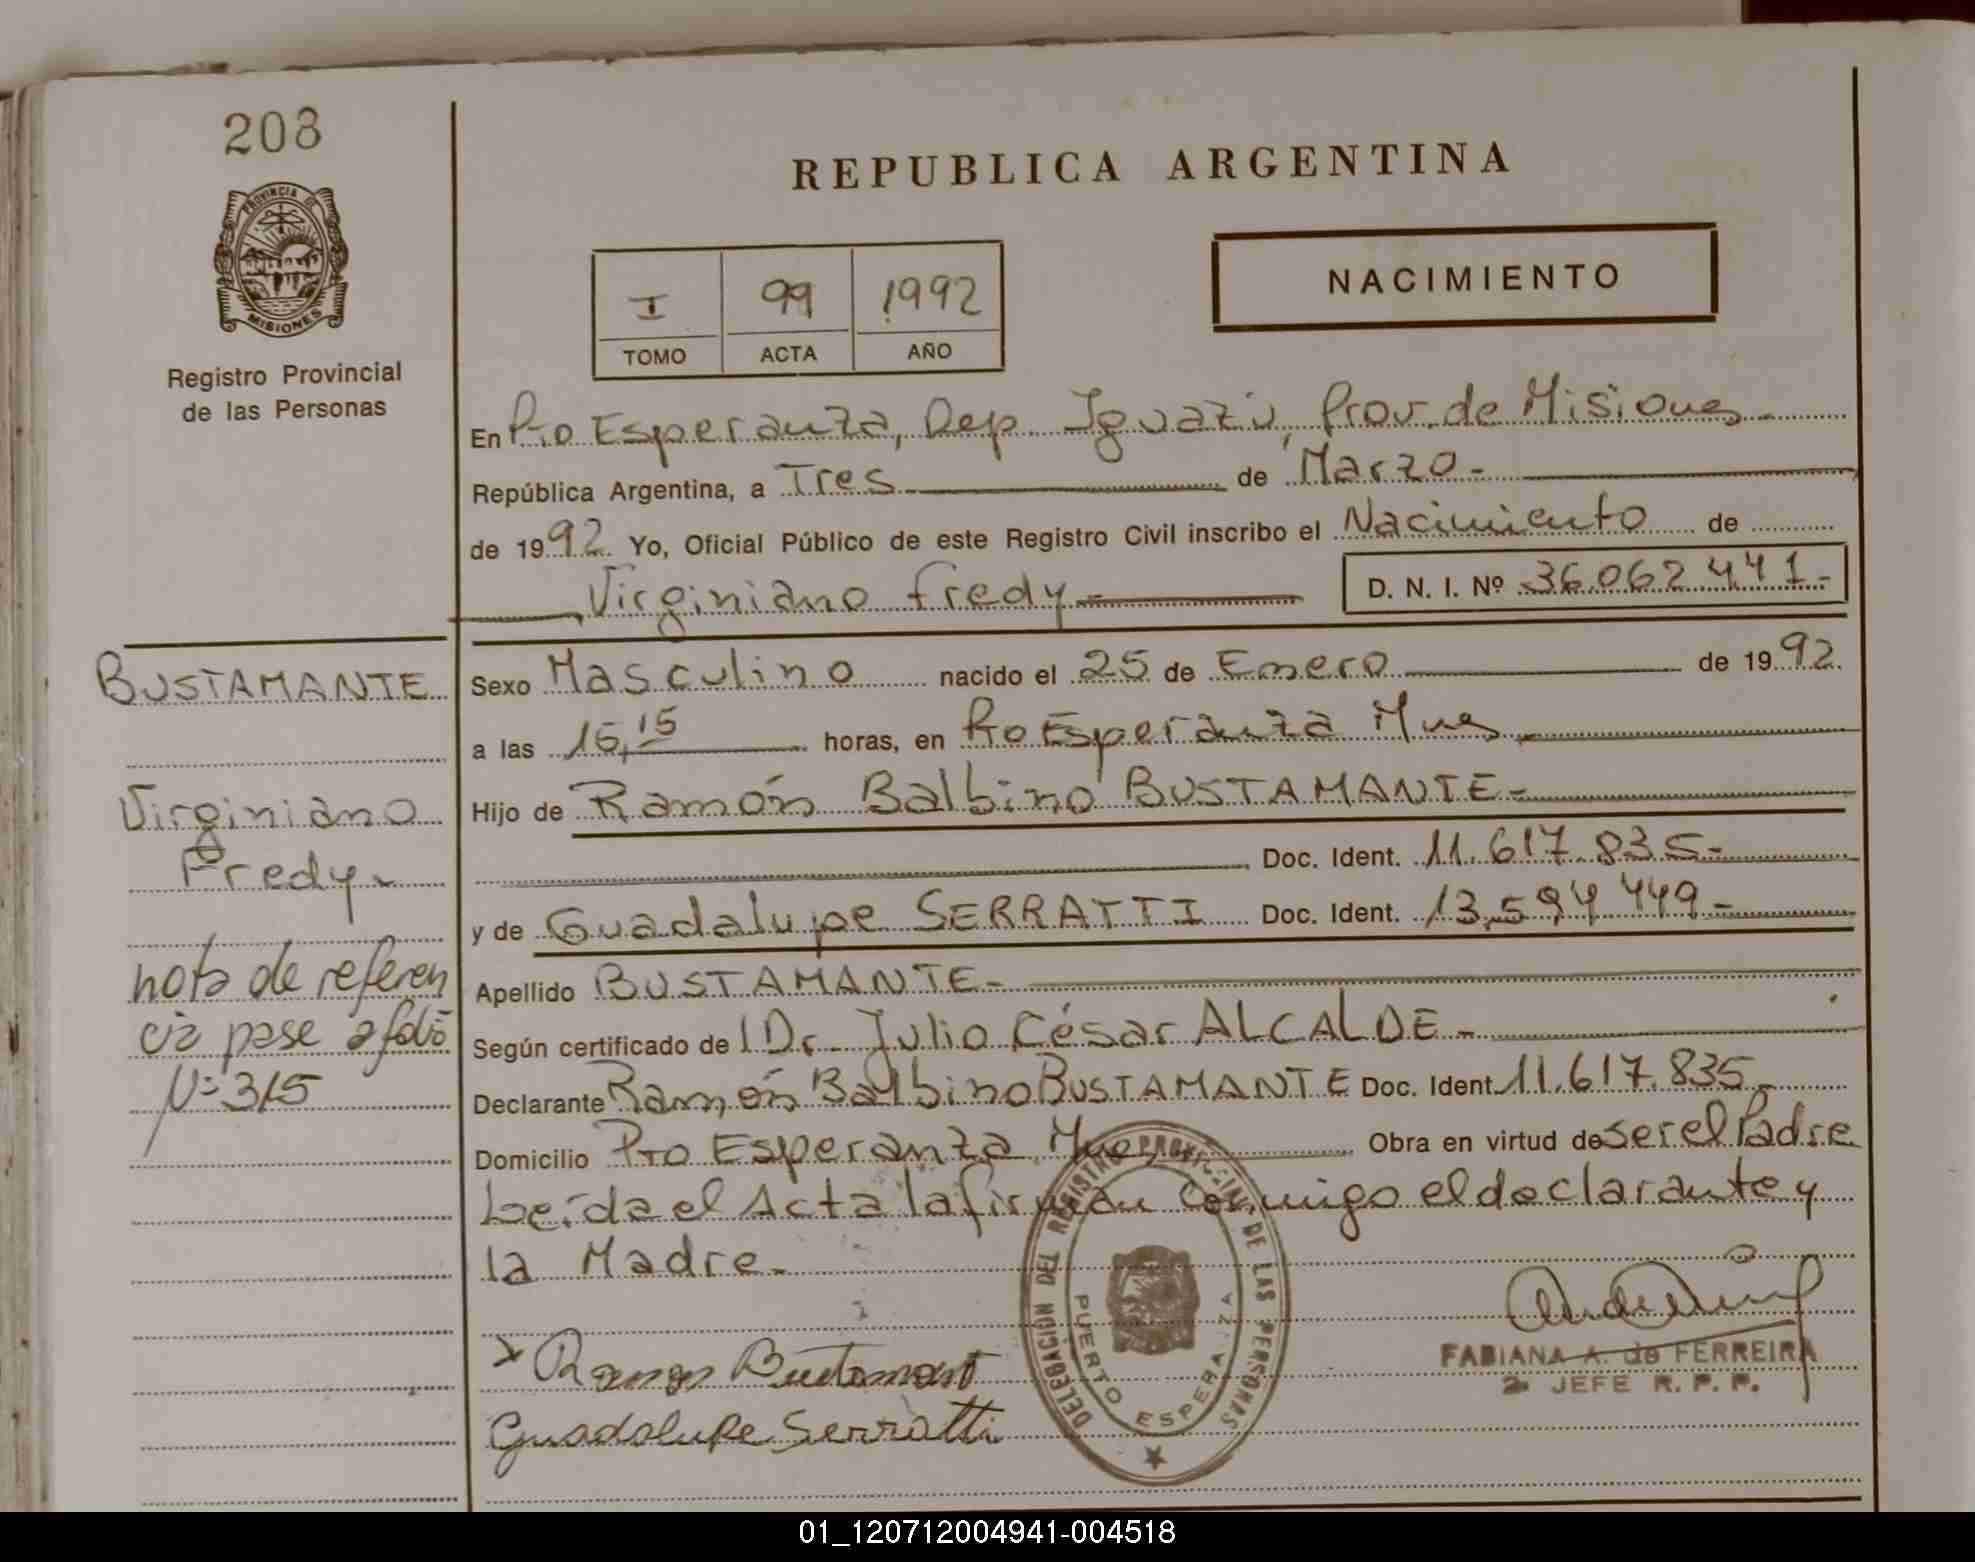 208
PROVINCIA DE
MISIONES
Registro Provincial
de las Personas
REPUBLICA ARGENTINA
I 99 1992
TOMO ACTA AÑO
NACIMIENTO
En Pto Esperanza, Dep. Iguazú, Prov. de Misiones
República Argentina, a Tres de Marzo-
de 1992. Yo, Oficial Público de este Registro Civil inscribo el Nacimiento de
Virginiano Fredy- D. N. I. Nº 36.062.441-
BUSTAMANTE
Virginiano
Fredy
nota de referen
cia pase a folio
Nº 315
Sexo Masculino nacido el 25 de Enero de 1992.
a las 15 horas, en Pto Esperanza Mnes
Hijo de Ramón Balbino BUSTAMANTE-
Doc. Ident. 11.617.835-
y de Guadalupe SERRATTI Doc. Ident. 13.594.449-
Apellido BUSTAMANTE-
Según certificado de l Dr. Julio César ALCALDE-
Declarante Ramón Balbino BUSTAMANTE Doc. Ident. 11.617.835-
Domicilio Pto Esperanza Mnes Obra en virtud de ser el Padre
Leída el Acta la firman conmigo el declarante y
la Madre-
Ramon Bustamant
Guadalupe Serratti
DELEGACION DEL REGISTRO PROVINCIAL DE LAS PERSONAS
PUERTO ESPERANZA
FABIANA A. de FERREIRA
2a JEFE R. P. P.
01_120712004941-004518